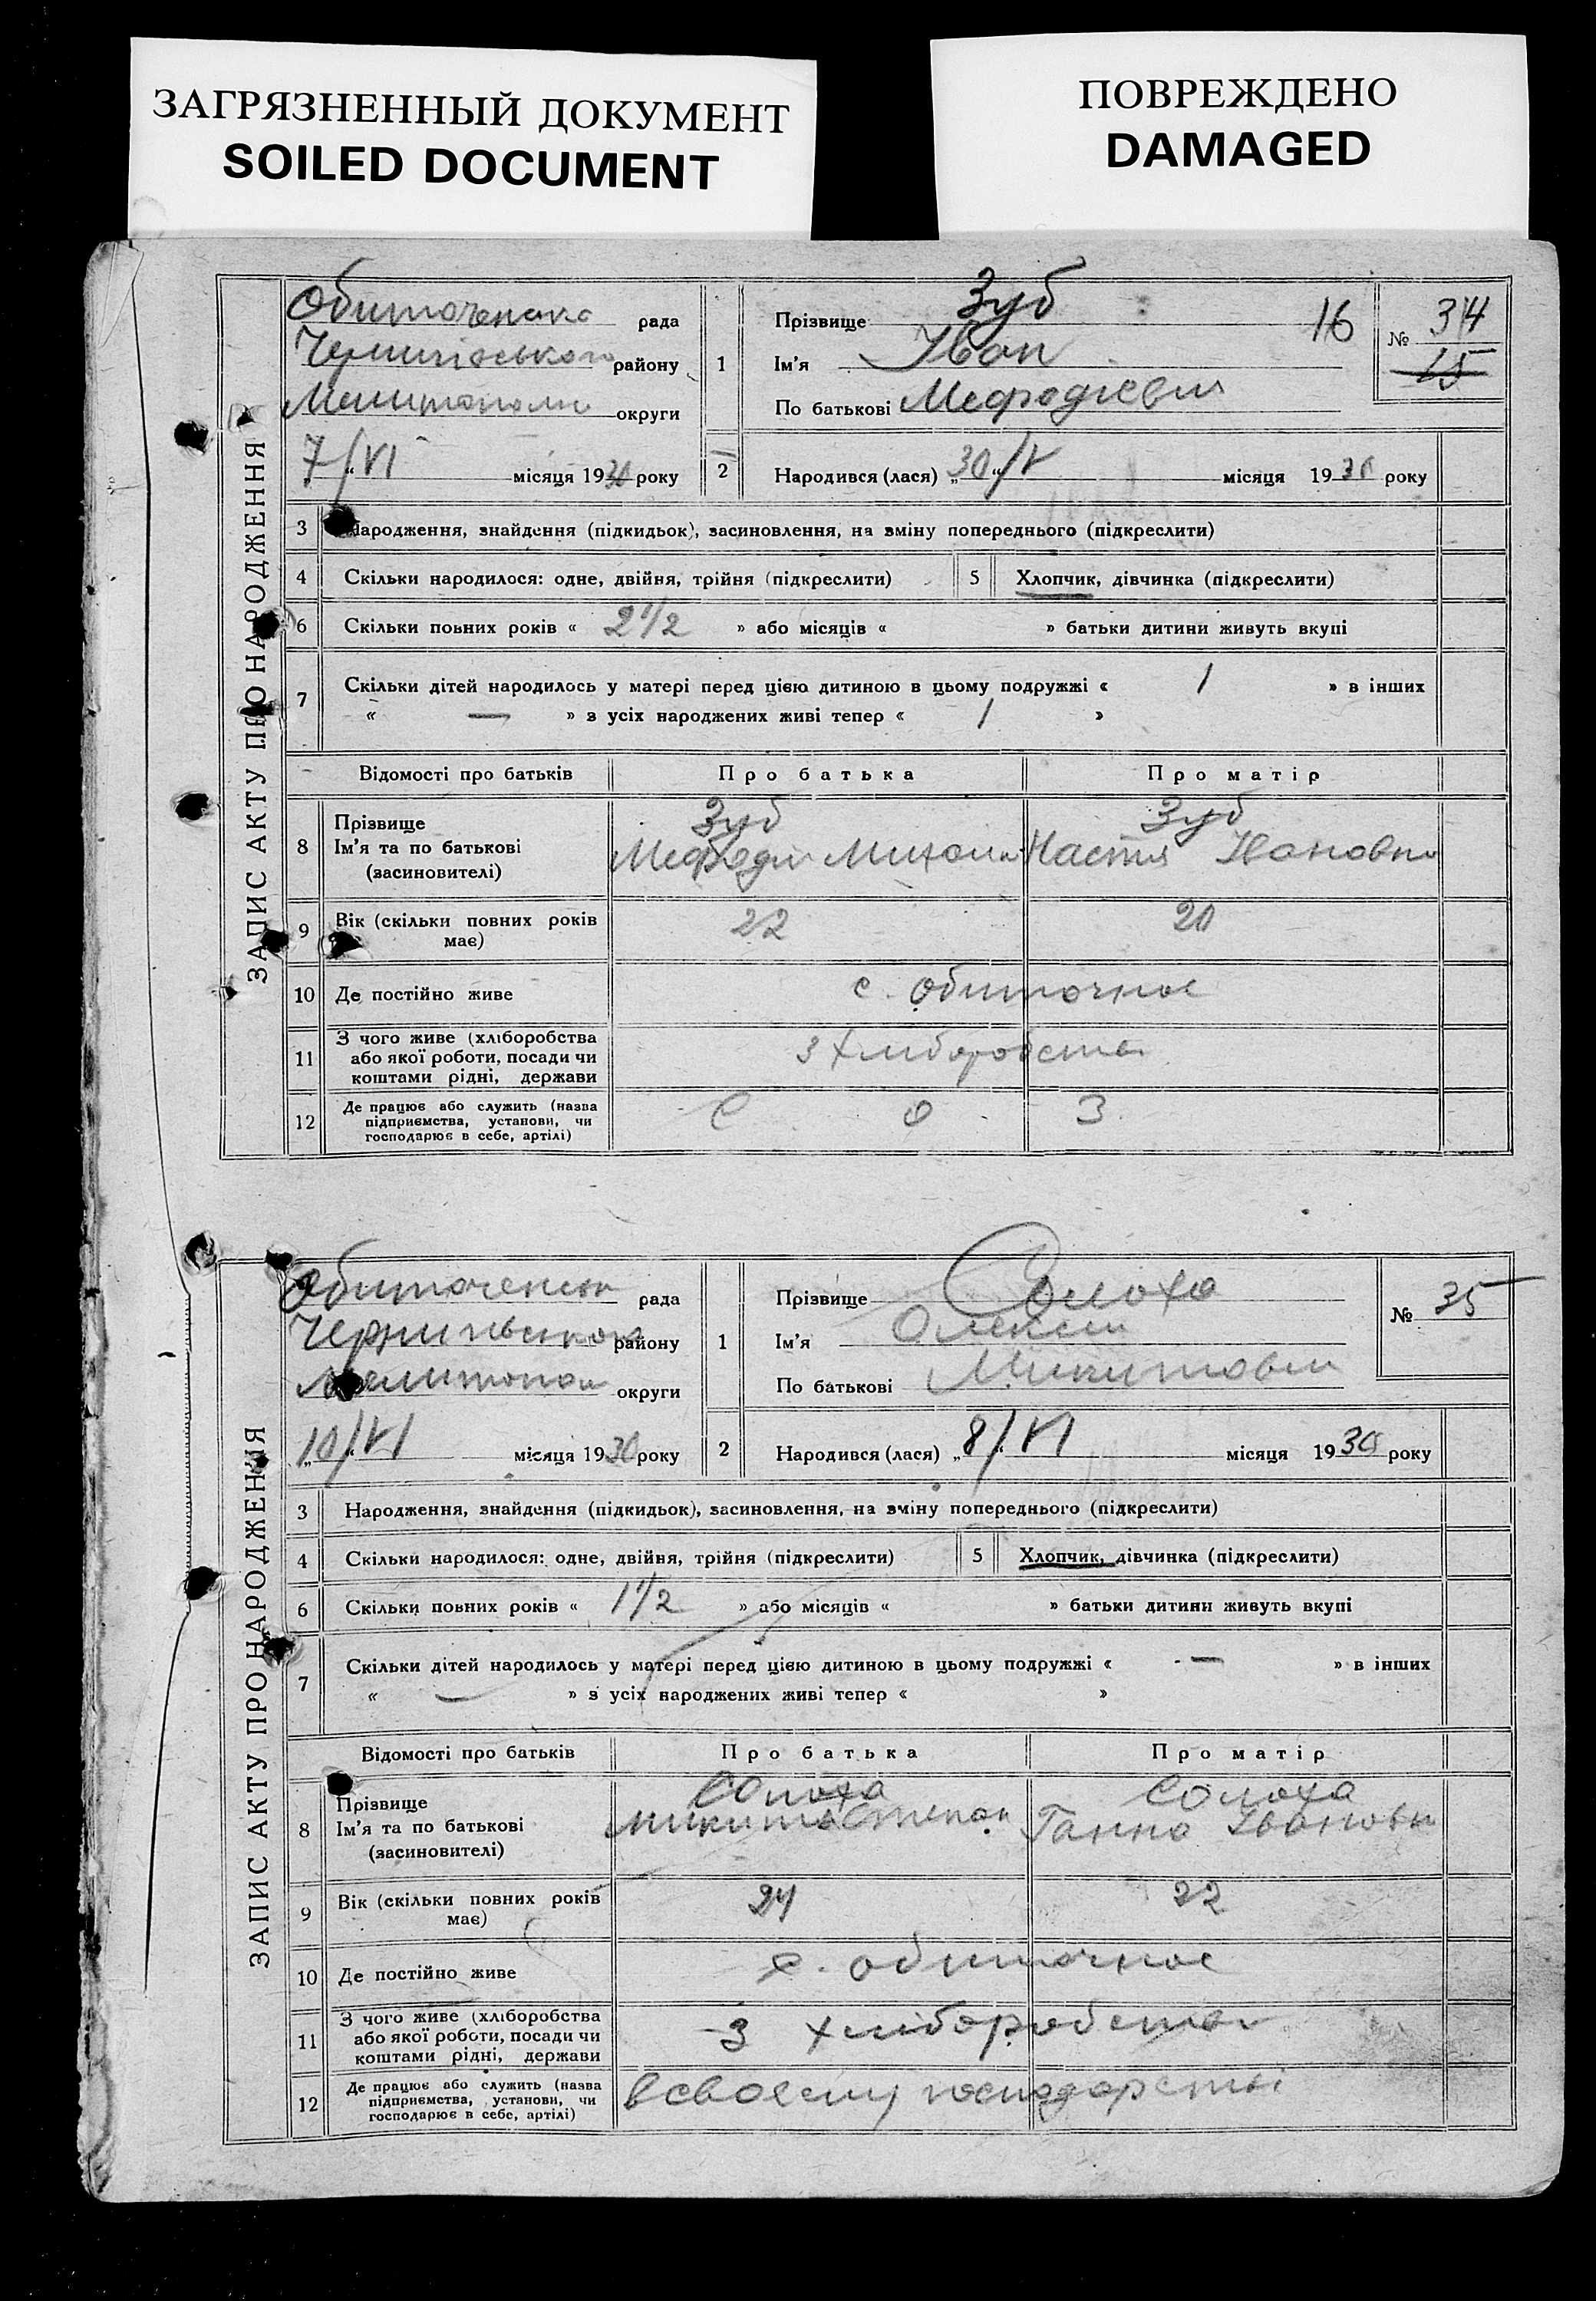 ЗАГРЯЗНЕННЫЙ ДОКУМЕНТ
SOILED DOCUMENT
ПОВРЕЖДЕНО
DAMAGED
ЗАПИС АКТУ ПРО НАРОДЖЕННЯ
рада
району
округи
7/VI місяця 1930 року
1
Прізвище Зуб 16
Ім'я Іван
По батькові Мефодієвич
№ 34
15
2 Народився (лася) „30“/V місяця 1930 року
3 Народження, знайдення (підкидьок), засиновлення, на зміну попереднього (підкреслити)
4 Скільки народилося: одне, двійня, трійня (підкреслити) 5 Хлопчик, дівчинка (підкреслити)
6 Скільки повних років « 2 1/2 » або місяців « » батьки дитини живуть вкупі
7 Скільки дітей народилось у матері перед цією дитиною в цьому подружжі « 1 » в інших
« — » з усіх народжених живі тепер « 1 »
Відомості про батьків Про батька Про матір
8 Прізвище Зуб Зуб
Ім'я та по батькові Мефоди Михаил Настя Івановна
(засиновителі)
9 Вік (скільки повних років 22 20
має)
10 Де постійно живе с. Обиточное
11 З чого живе (хліборобства з хліборобства
або якої роботи, посади чи
коштами рідні, держави
12 Де працює або служить (назва С О З
підприємства, установи, чи
господарює в себе, артілі)
ЗАПИС АКТУ ПРО НАРОДЖЕННЯ
рада
району
округи
„10“/VI місяця 1930 року
1
Прізвище Солоха
Ім'я Олексій
По батькові Микитович
№ 35
2 Народився (лася) „8“/VI місяця 1930 року
3 Народження, знайдення (підкидьок), засиновлення, на зміну попереднього (підкреслити)
4 Скільки народилося: одне, двійня, трійня (підкреслити) 5 Хлопчик, дівчинка (підкреслити)
6 Скільки повних років « 1 1/2 » або місяців « » батьки дитини живуть вкупі
7 Скільки дітей народилось у матері перед цією дитиною в цьому подружжі « — » в інших
« — » з усіх народжених живі тепер « »
Відомості про батьків Про батька Про матір
8 Прізвище Солоха Солоха
Ім'я та по батькові Микита Степан Ганна Івановна
(засиновителі)
9 Вік (скільки повних років 24 22
має)
10 Де постійно живе с. Обиточное
11 З чого живе (хліборобства З хліборобства
або якої роботи, посади чи
коштами рідні, держави
12 Де працює або служить (назва в своему господарстві
підприємства, установи, чи
господарює в себе, артілі)